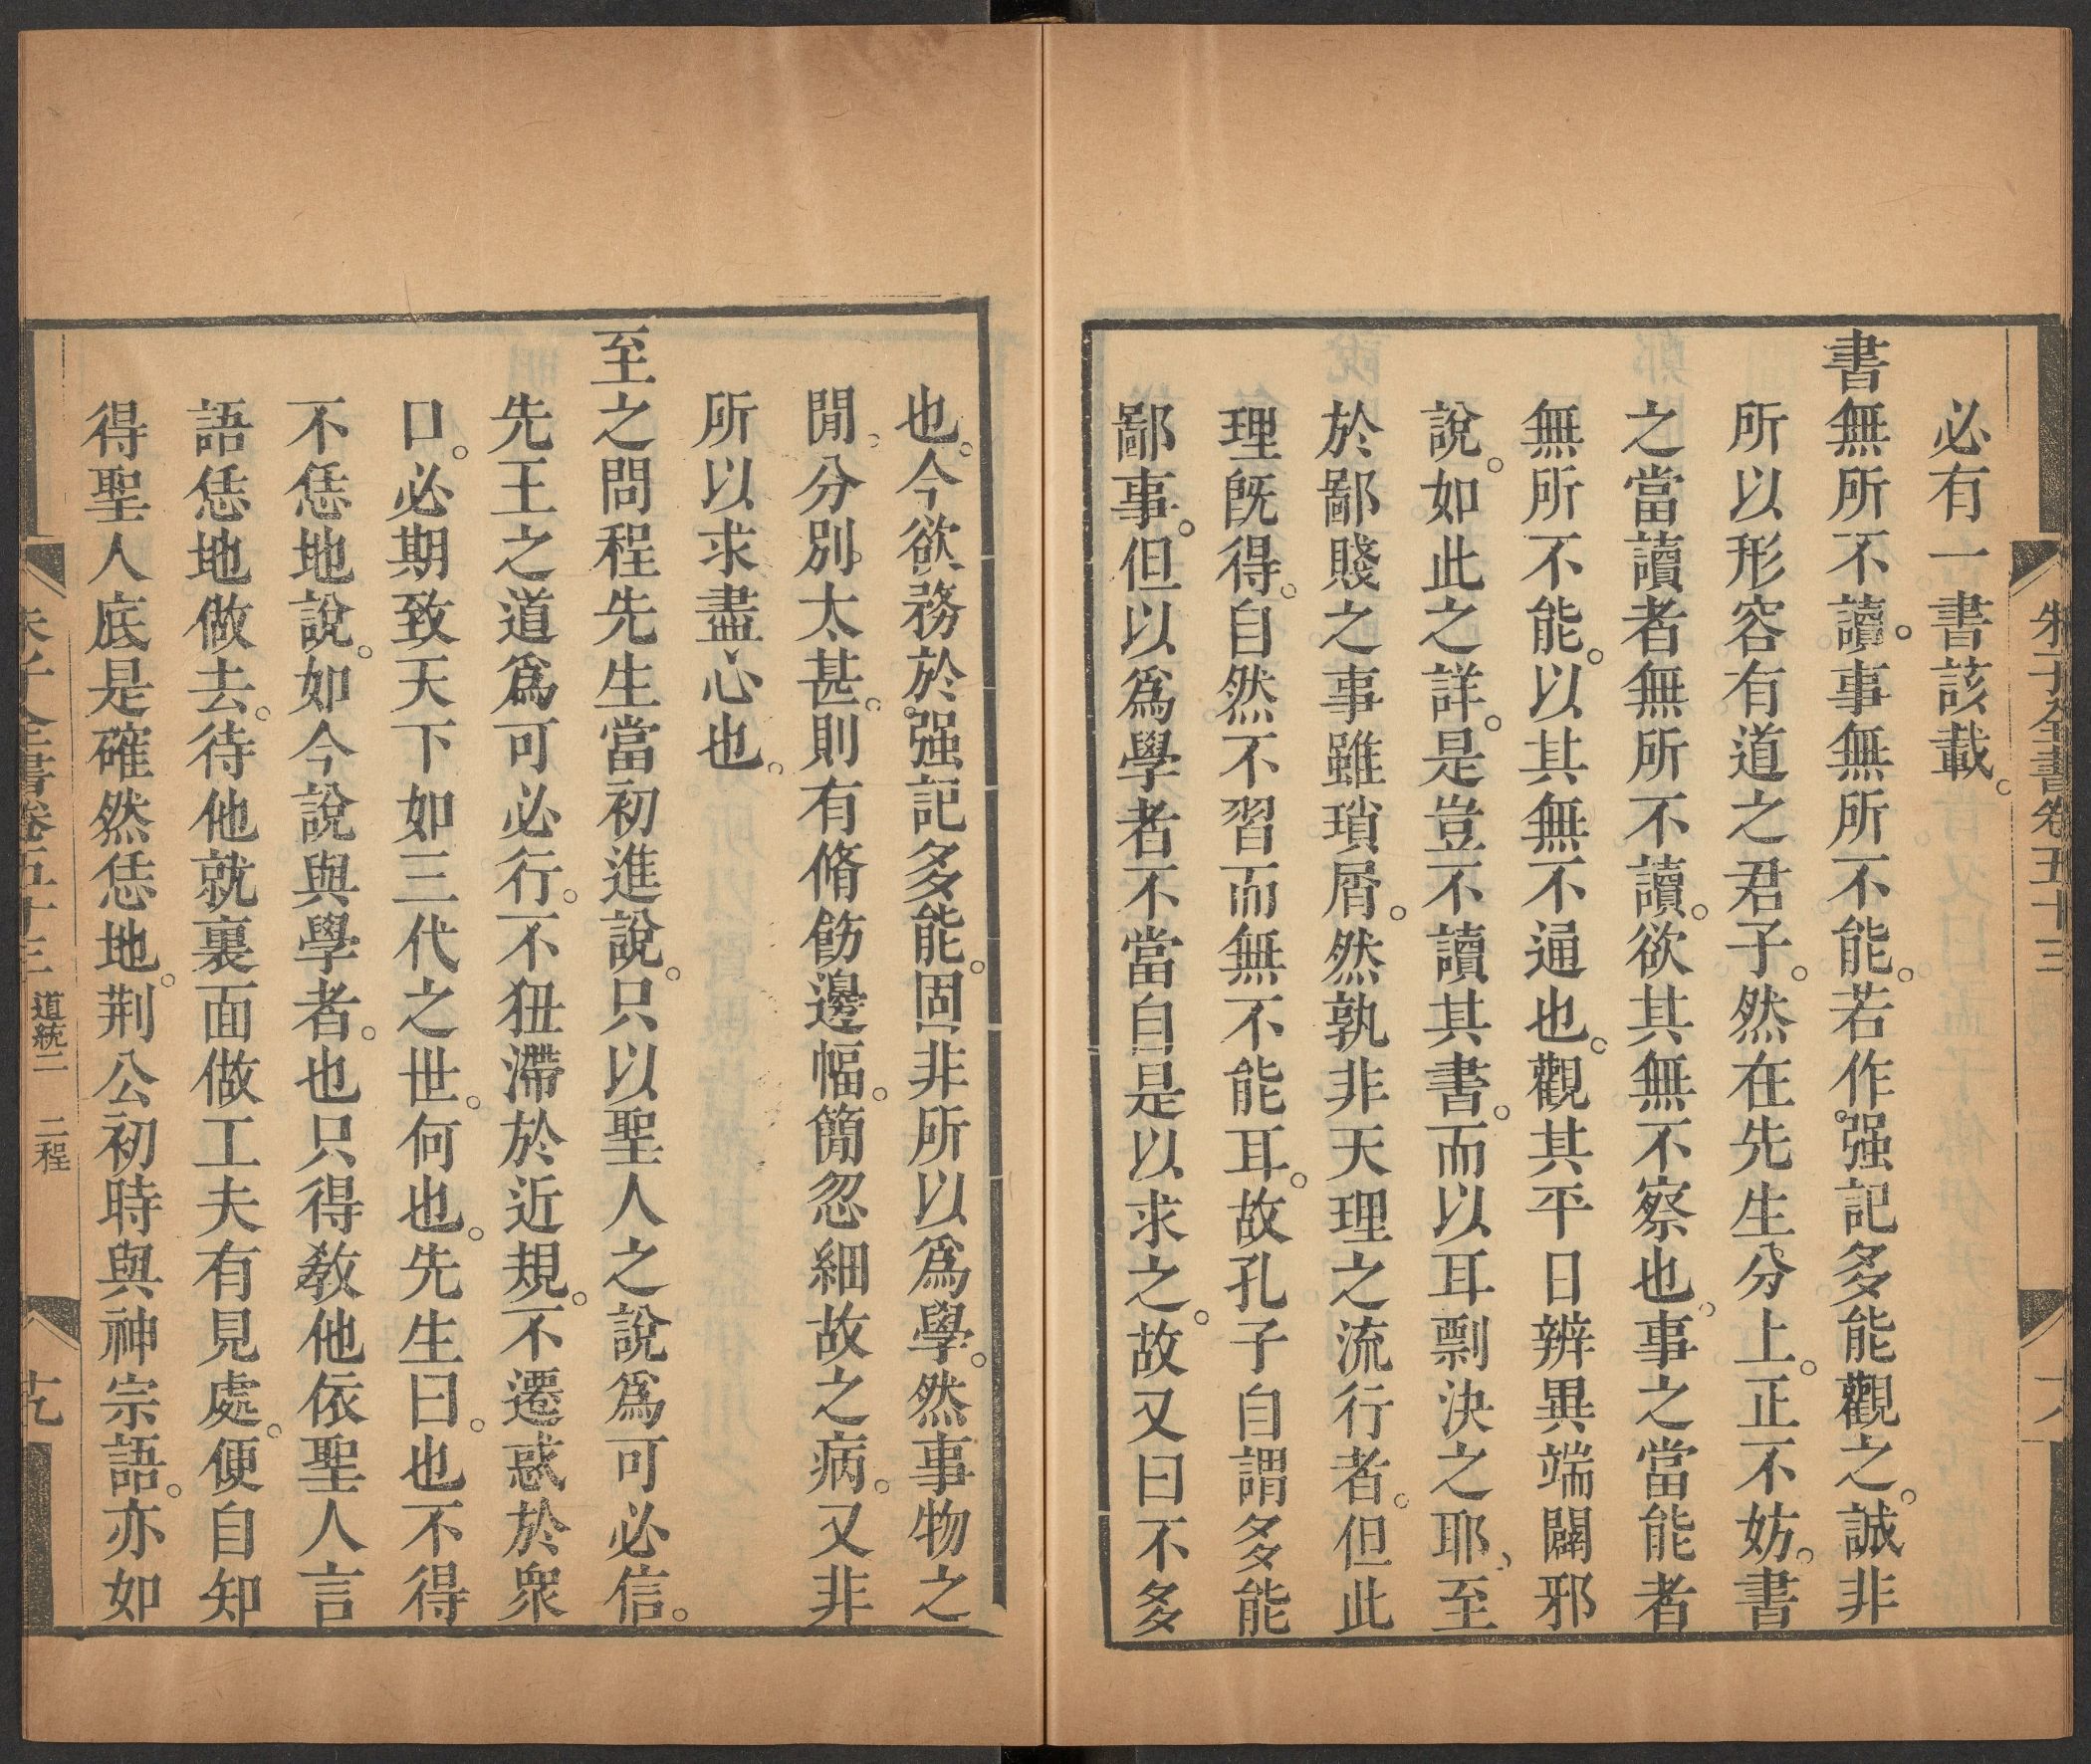 必有一書該載。
書無所不讀。事無所不能。若作强記多能觀之。誠非
所以形容有道之君子。然在先生分上。正不妨。書
之當讀者無所不讀。欲其無不察也。事之當能者
無所不能。以其無不通也。觀其平日辨異端闢邪
說。如此之詳。是豈不讀其書。而以耳剽決之耶、至
於鄙賤之事雖瑣屑。然孰非天理之流行者。但此
理旣得。自然不習而無不能耳。故孔子自謂多能
鄙事。但以爲學者不當自是以求之。故又曰不多
朱子全書卷五十三
也。今欲務於强記多能。固非所以爲學。然事物之
閒。分別太甚。則有脩飭邊幅。簡忽細故之病。又非
所以求盡心也。
至之問程先生當初進說。只以聖人之說爲可必信。
先王之道爲可必行。不狃滯於近規。不遷惑於衆
口。必期致天下如三代之世。何也。先生曰。也不得
不恁地說。如今說與學者。也只得敎他依聖人言
語恁地做去。待他就裏面做工夫有見處。便自知
得聖人底是確然恁地。荆公初時與神宗語。亦如
朱子全書卷五十三 道統二 二程